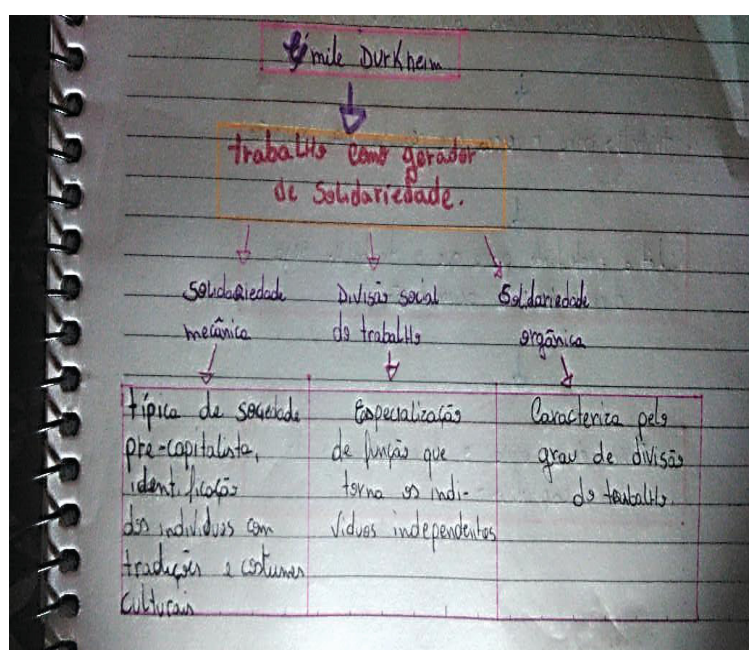 Émile Durkheim
trabalho como gerador
de Solidariedade.
Solidariedade
mecânica
Divisão social
do trabalho
Solidariedade
orgânica
típica de sociedade
pre-capitalista,
identificação
dos individuos com
tradições e costumes
Culturais
Especialização
de função que
torna os indi-
viduos independentes
Caracteriza pelo
grau de divisão
do trabalho.